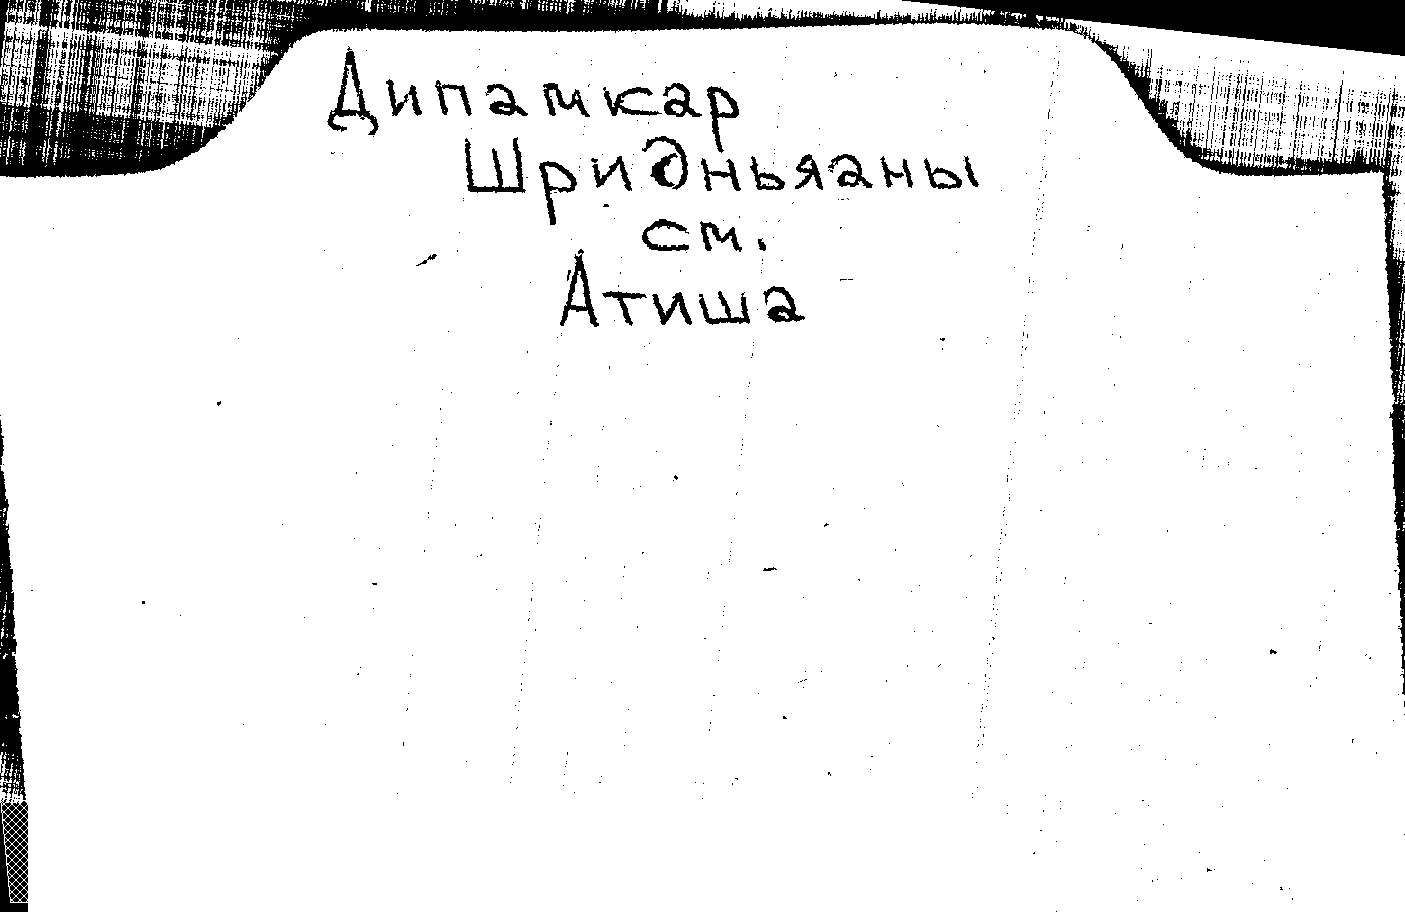 Дипамкар
Шридньяаны
см.
Атиша